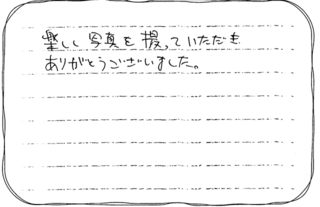 楽しい写真を撮っていただき
ありがとうございました。